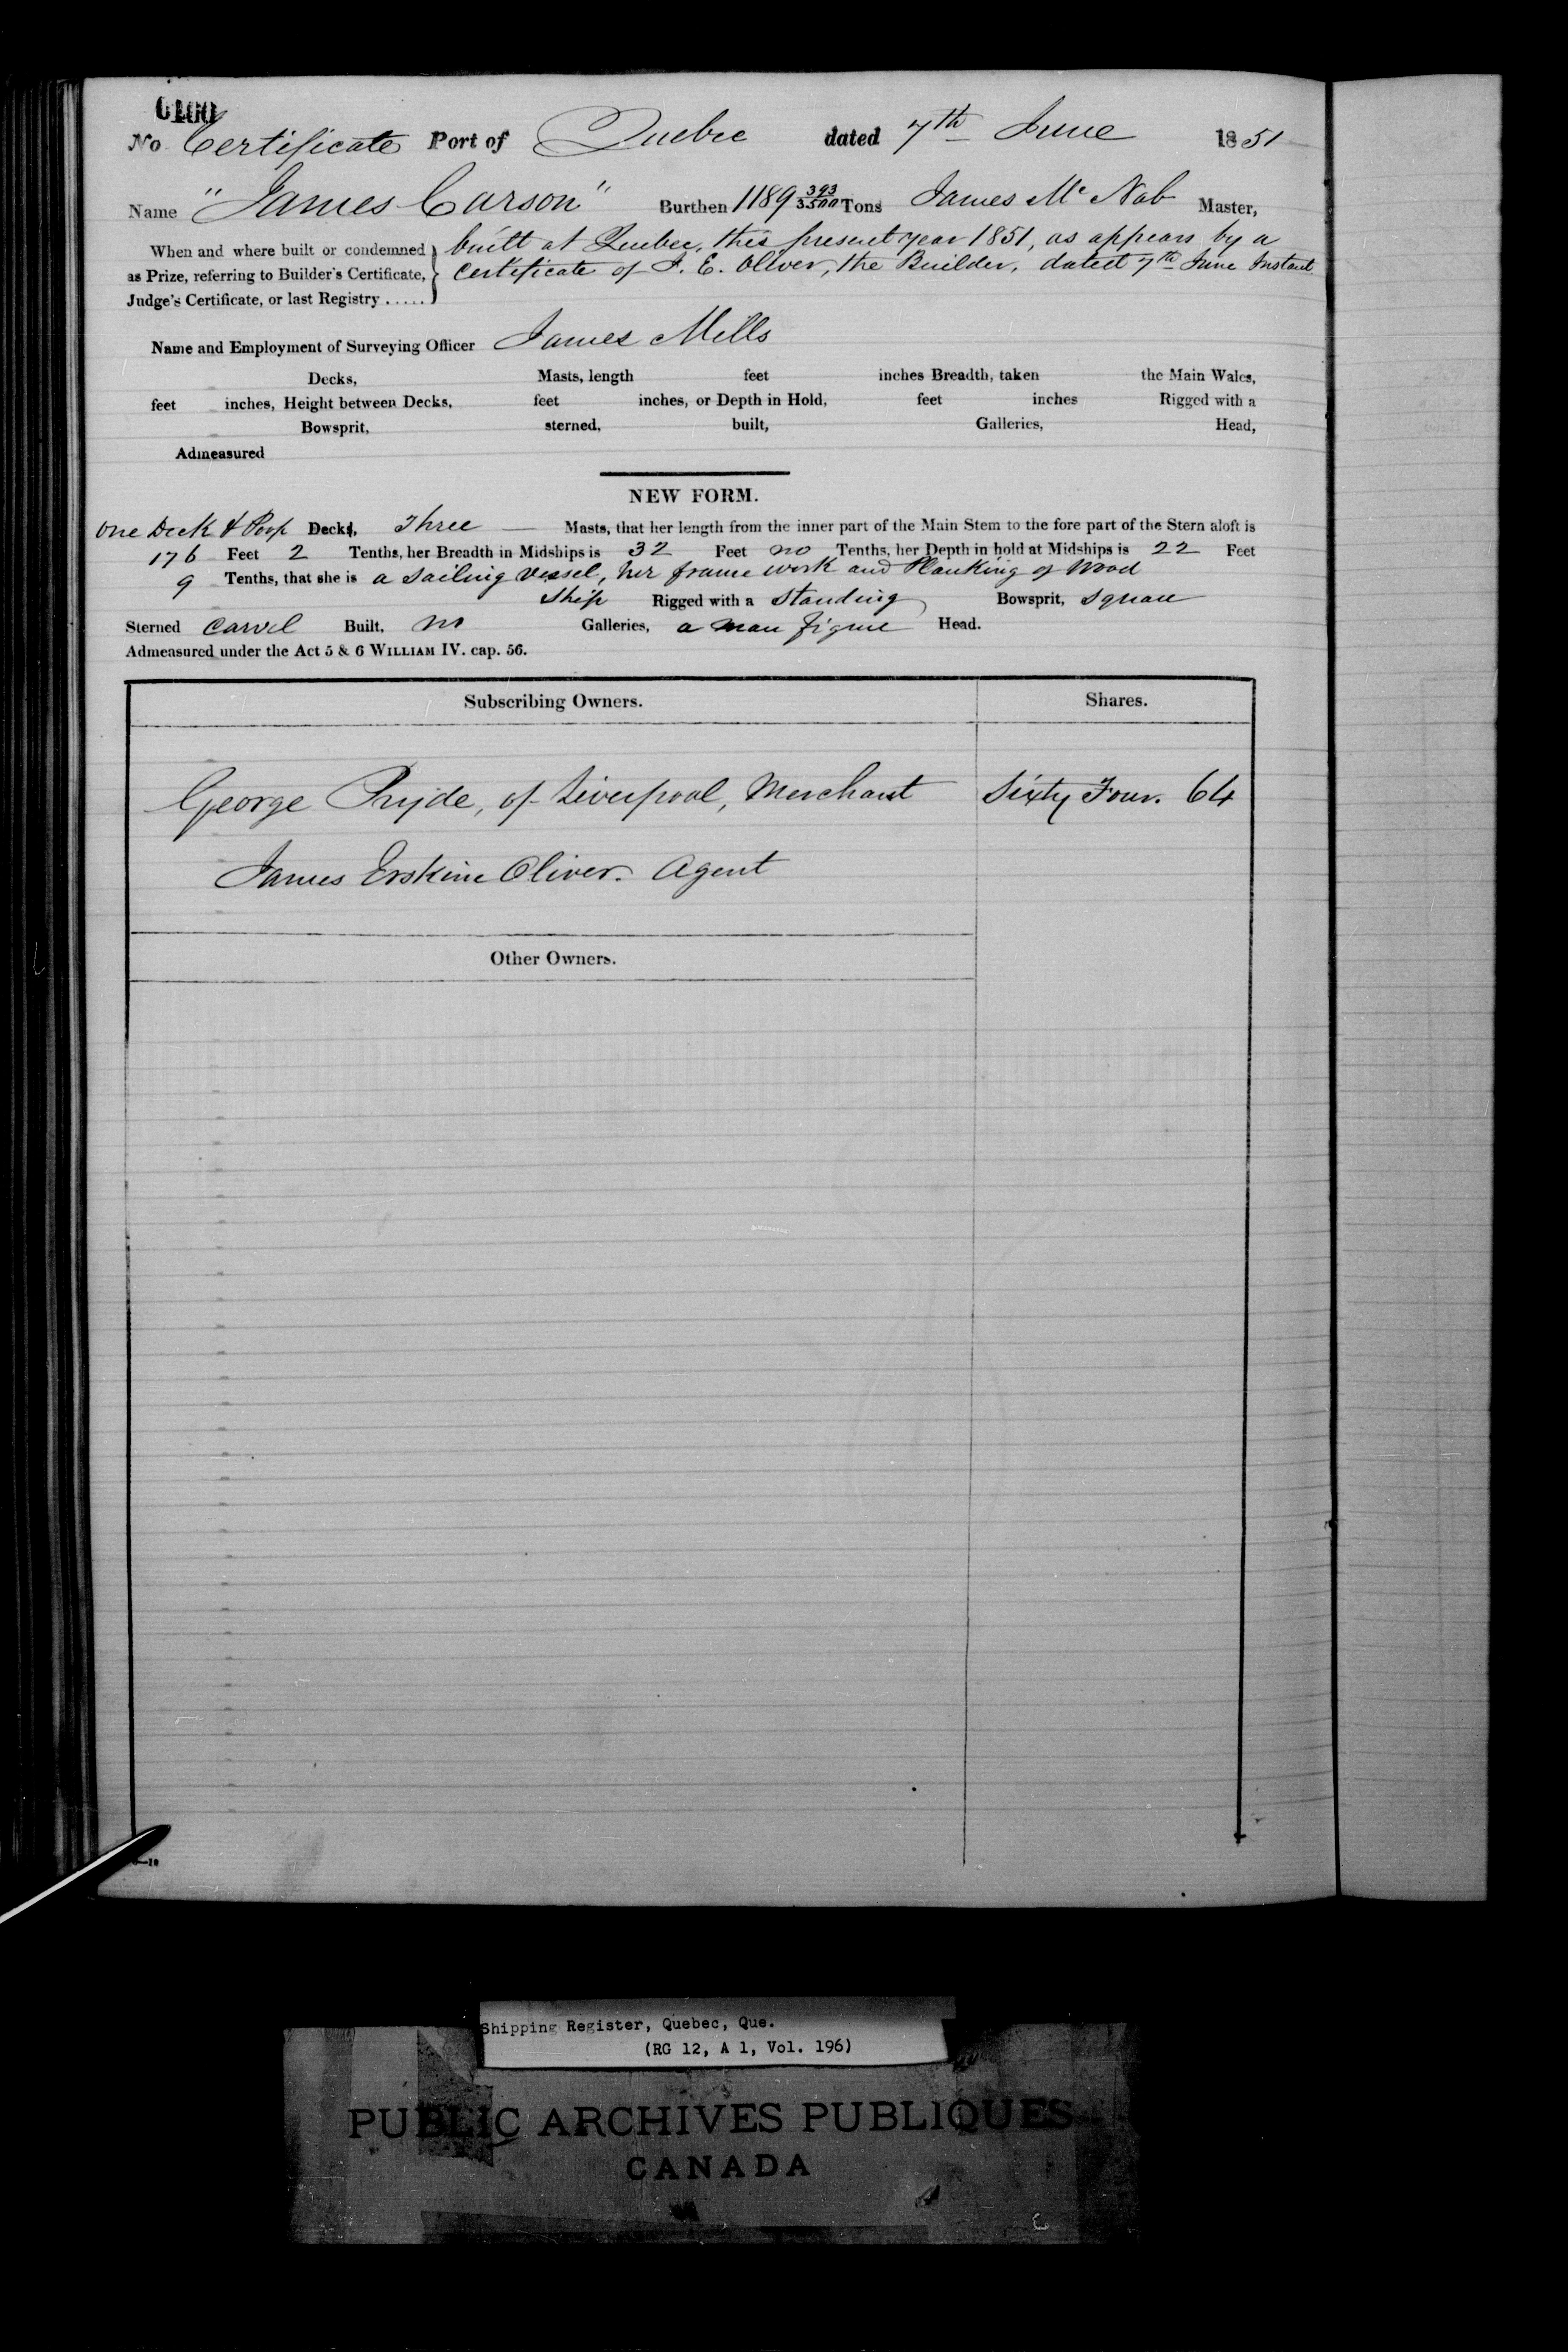 No Certificate Port of Quebec dated 7th June 1851
Name "James Carson" Burthen 1189 393/3500 Tons James Mc Nab Master,
When and where built or condemned as Prize, referring to Builder's Certificate, Judge's Certificate, or last Registry .....
built at Quebec, this present year 1851, as appears by a
Certificate of J. E. Oliver, the Builder, dated 7th June Instant
Name and Employment of Surveying Officer James Mills
Decks, Masts, length feet inches Breadth, taken the Main Wales,
feet inches, Height between Decks, feet inches, or Depth in Hold, feet inches Rigged with a
Bowsprit, sterned, built, Galleries, Head,
Admeasured
NEW FORM.
One Deck & Poop Decks, Three — Masts, that her length from the inner part of the Main Stem to the fore part of the Stern aloft is
176 Feet 2 Tenths, her Breadth in Midships is 32 Feet no Tenths, her Depth in hold at Midships is 22 Feet
9 Tenths, that she is a Sailing Vessel, her frame work and Planking of Wood
Ship Rigged with a Standing Bowsprit, Square
Sterned Carvel Built, no Galleries, a man figure Head.
Admeasured under the Act 5 & 6 WILLIAM IV. cap. 56.
Subscribing Owners. Shares.
George Pryde, of Liverpool, Merchant Sixty Four. 64
James Erskine Oliver. Agent
Other Owners.
Shipping Register, Quebec, Que.
(RG 12, A 1, Vol. 196)
PUBLIC ARCHIVES PUBLIQUES
CANADA